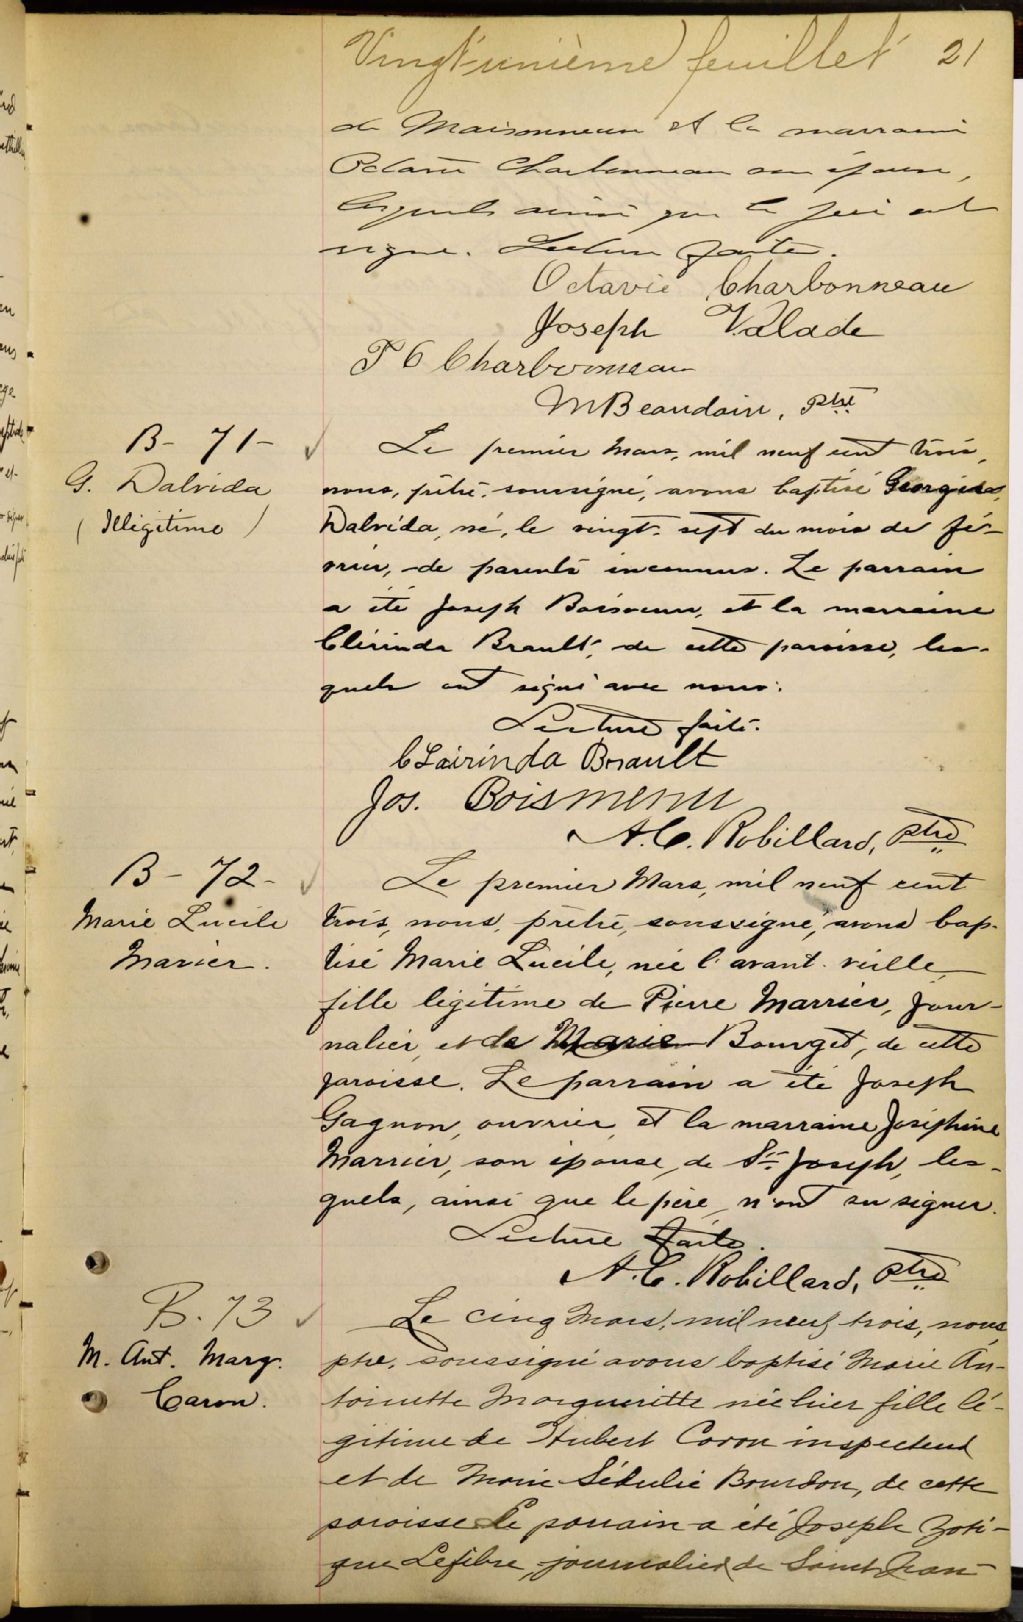 Vingt-unième feuillet 21
de Maisonneuve et la marraine
Octavie Charbonneau son épouse,
lesquels ainsi que le père ont
signé. Lecture faite.
Octavie Charbonneau
Joseph Valade
Charbonneau
Beaudoin, Ptre
B - 71 -
G. Dalvida
( Illégitime )
Le premier Mars, mil neuf cent trois,
nous, prêtre, soussigné, avons baptisé
Dalvida, né, le vingt-sept du mois de fé-
vrier, de parents inconnus. Le parrain
a été Joseph Boismenu, et la marraine
Clérinda Brault, de cette paroisse, les-
quels ont signé avec nous.
Lecture faite.
Clairinda Brault
Jos. Boismenu
A. C. Robillard, ptre
B - 72 -
Marie Lucile
Marier.
Le premier Mars, mil neuf cent
trois, nous, prêtre, soussigné, avons bap-
tisé Marie Lucile, née l'avant-veille,
fille légitime de Pierre Marrier, jour-
nalier, et de Marie Bourget, de cette
paroisse. Le parrain a été Joseph
Gagnon, ouvrier, et la marraine Joséphine
Marrier, son épouse, de St Joseph, les-
quels, ainsi que le père, n'ont su signer.
Lecture faite.
A. C. Robillard, ptre
B. 73
M. Ant. Marg.
Caron.
Le cinq Mars, mil neuf trois, nous,
ptre, soussigné avons baptisé Marie An-
toinette Margueritte née hier fille lé-
gitime de Hubert Caron inspecteur
et de Marie Sédulie Bourdon, de cette
paroisse Le parrain a été Joseph Zoti-
que Lefebre, journalier, de Saint Jean-